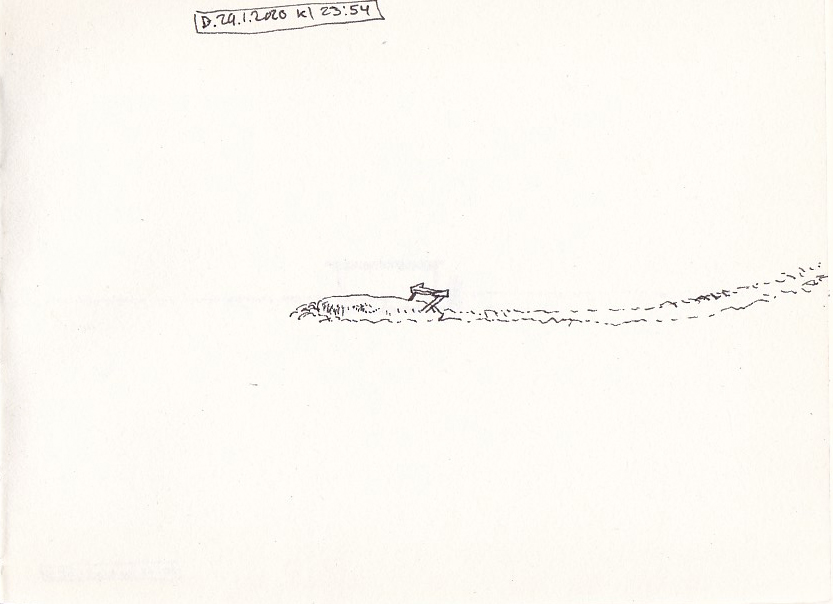 D.29.1.2020 kl 23:54